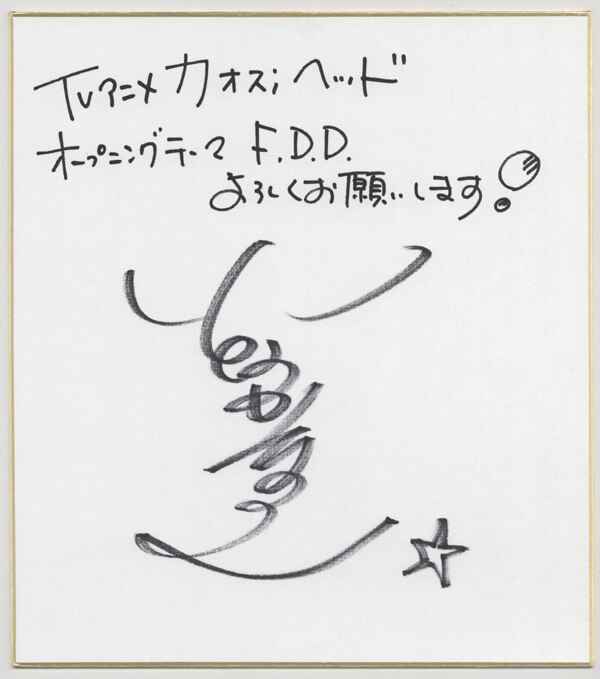 TVアニメ カオス;ヘッド
オープニングテーマ F.D.D.
よろしくお願いします!